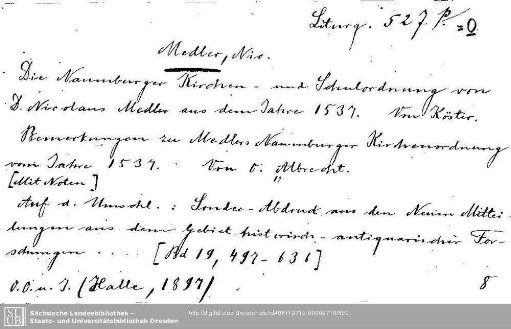 Liturg. 527 P. =0
Medler, Nic.
Die Naumburger Kirchen- und Schulordnung von
D. Nicolaus Medler aus dem Jahre 1537. Von Köster.
Bemerkungen zu Medlers Naumburger Kirchenordnung
vom Jahre 1537. Von O. Albrecht.
[Mit Noten]
Auf d. Umschl.: Sonder-Abdruck aus den Neuen Mittei-
lungen aus dem Gebiet historisch-antiquarischer For-
schungen .... [Bd 19, 497-636]
O.O.u.J. (Halle, 1897) 8
SLUB
Sächsische Landesbibliothek –
Staats- und Universitätsbibliothek Dresden